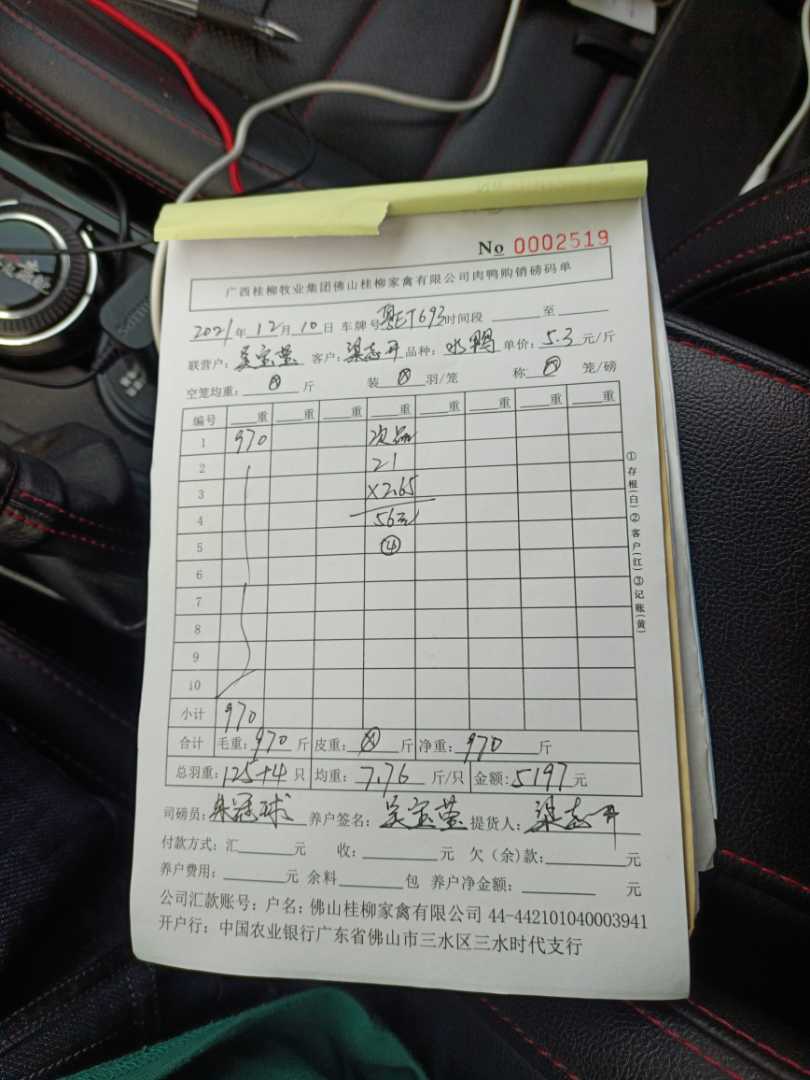 No 0002519
广西桂柳牧业集团佛山桂柳家禽有限公司肉鸭购销磅码单
2021年12月10日 车牌号 粤ET693 时间段 至
联营户: 吴宝莹 客户: 梁志开 品种: 水鸭 单价: 5.3 元/斤
空笼均重: 斤 装 羽/笼 称 笼/磅
编号 重 重 重 重 重 重 重 重
1 970 次品
2 21
3 ×2.65
4 56元
5 ④
6
7
8
9
10
小计 970
合计 毛重: 970 斤 皮重: 斤 净重: 970 斤
总羽重: 125+4 只 均重: 7.76 斤/只 金额: 5197 元
司磅员: 朱冠球 养户签名: 吴宝莹 提货人: 梁志开
付款方式: 汇 元 收: 元 欠(余)款: 元
养户费用: 元 余料 包 养户净金额: 元
公司汇款账号: 户名: 佛山桂柳家禽有限公司 44-442101040003941
开户行: 中国农业银行广东省佛山市三水区三水时代支行
①存根(白)②客户(红)③记账(黄)